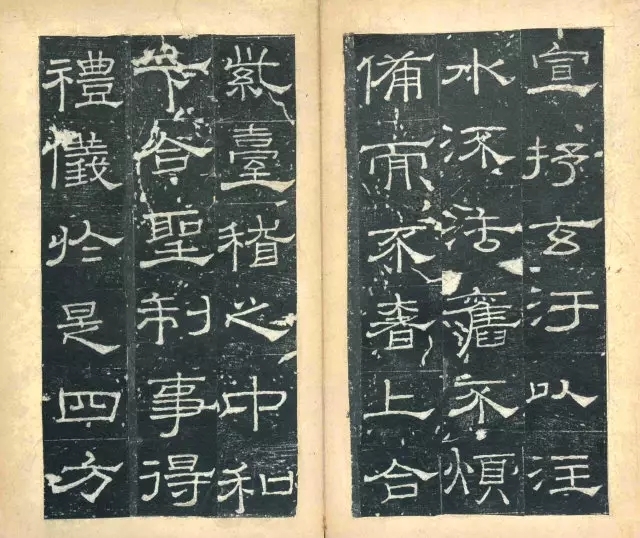 宣抒玄汙以注
水流法舊不煩
備而不奢上合
紫臺稽之中和
下合聖制事得
禮儀於是四方